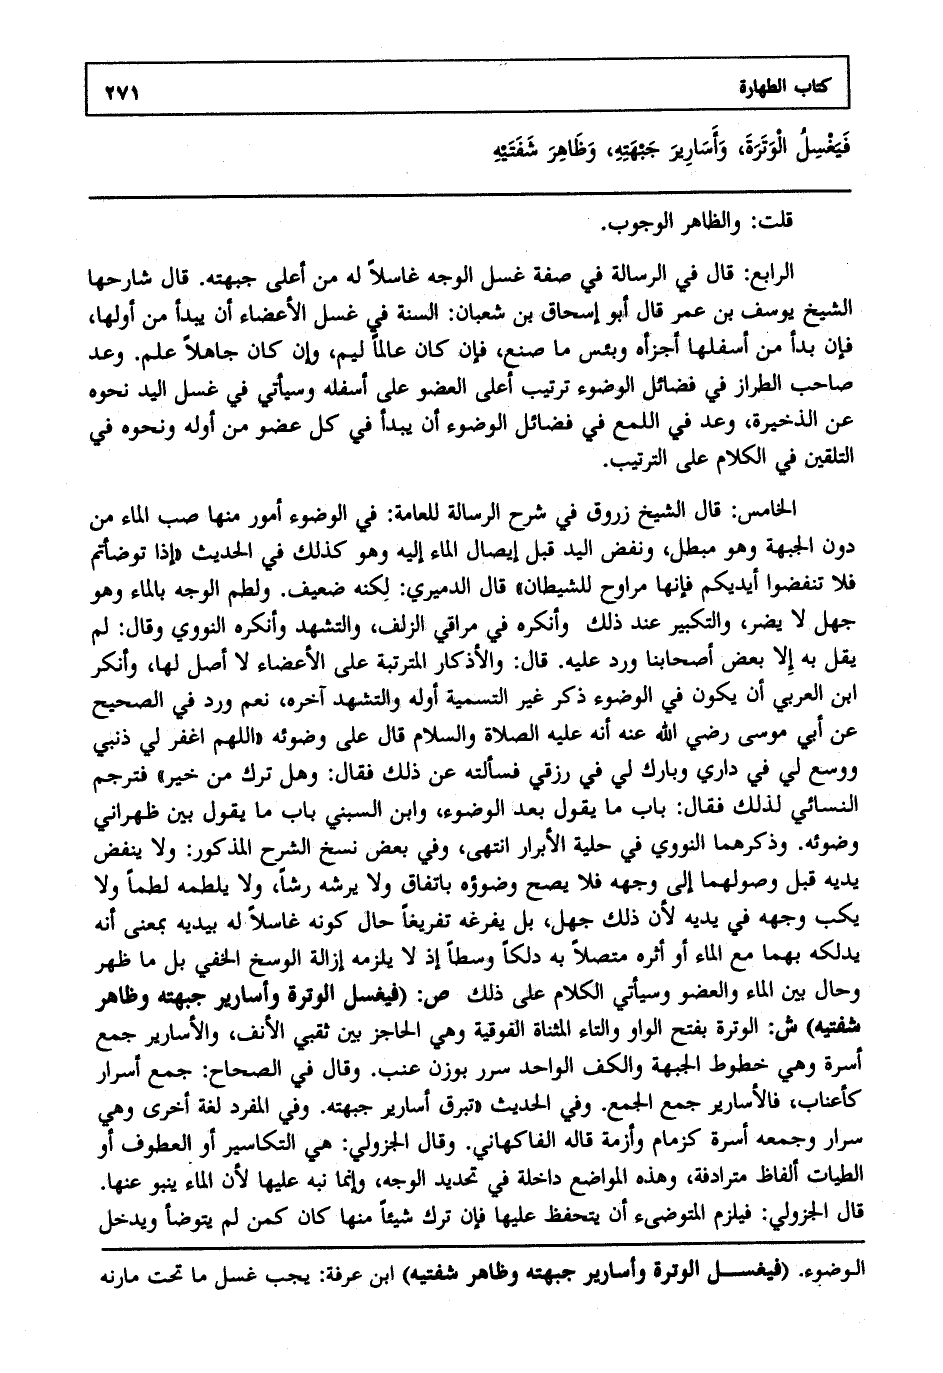 كتاب الطهارة ٢٧١
فَيَغْسِلُ الْوَتَرَةَ، وَأَسَارِيرَ جَبْهَتِهِ، وَظَاهِرَ شَفَتَيْهِ
قلت: والظاهر الوجوب.
الرابع: قال في الرسالة في صفة غسل الوجه غاسلاً له من أعلى جبهته. قال شارحها
الشيخ يوسف بن عمر قال أبو إسحاق بن شعبان: السنة في غسل الأعضاء أن يبدأ من أولها،
فإن بدأ من أسفلها أجزأه وبئس ما صنع، فإن كان عالماً ليم، وإن كان جاهلاً علم. وعد
صاحب الطراز في فضائل الوضوء ترتيب أعلى العضو على أسفله وسيأتي في غسل اليد نحوه
عن الذخيرة، وعد في اللمع في فضائل الوضوء أن يبدأ في كل عضو من أوله ونحوه في
التلقين في الكلام على الترتيب.
الخامس: قال الشيخ زروق في شرح الرسالة للعامة: في الوضوء أمور منها صب الماء من
دون الجبهة وهو مبطل، ونفض اليد قبل إيصال الماء إليه وهو كذلك في الحديث «إذا توضأتم
فلا تنفضوا أيديكم فإنها مراوح للشيطان» قال الدميري: لكنه ضعيف. ولطم الوجه بالماء وهو
جهل لا يضر، والتكبير عند ذلك وأنكره في مراقي الزلف، والتشهد وأنكره النووي وقال: لم
يقل به إلا بعض أصحابنا ورد عليه. قال: والأذكار المترتبة على الأعضاء لا أصل لها، وأنكر
ابن العربي أن يكون في الوضوء ذكر غير التسمية أوله والتشهد آخره، نعم ورد في الصحيح
عن أبي موسى رضي الله عنه أنه عليه الصلاة والسلام قال على وضوئه «اللهم اغفر لي ذنبي
ووسع لي في داري وبارك لي في رزقي فسألته عن ذلك فقال: وهل ترك من خير» فترجم
النسائي لذلك فقال: باب ما يقول بعد الوضوء، وابن السيني باب ما يقول بين ظهراني
وضوئه. وذكرهما النووي في حلية الأبرار انتهى، وفي بعض نسخ الشرح المذكور: ولا ينفض
يديه قبل وصولهما إلى وجهه فلا يصح وضوؤه باتفاق ولا يرشه رشاً، ولا يلطمه لطماً ولا
يكب وجهه في يديه لأن ذلك جهل، بل يفرغه تفريغاً حال كونه غاسلاً له بيديه بمعنى أنه
يدلكه بهما مع الماء أو أثره متصلاً به دلكاً وسطاً إذ لا يلزمه إزالة الوسخ الخفي بل ما ظهر
وحال بين الماء والعضو وسيأتي الكلام على ذلك ص: (فيغسل الوترة وأسارير جبهته وظاهر
شفتيه) ش: الوترة بفتح الواو والتاء المثناة الفوقية وهي الحاجز بين ثقبي الأنف، والأسارير جمع
أسرة وهي خطوط الجبهة والكف الواحد سرر بوزن عنب. وقال في الصحاح: جمع أسرار
كأعناب، فالأسارير جمع الجمع. وفي الحديث «تبرق أسارير جبهته. وفي المفرد لغة أخرى وهي
سرار وجمعه أسرة كزمام وأزمة قاله الفاكهاني. وقال الجزولي: هي التكاسير أو العطوف أو
الطيات ألفاظ مترادفة، وهذه المواضع داخلة في تحديد الوجه، وإنما نبه عليها لأن الماء ينبو عنها.
قال الجزولي: فيلزم المتوضىء أن يتحفظ عليها فإن ترك شيئاً منها كان كمن لم يتوضأ ويدخل
الوضوء. (فيغسل الوترة وأسارير جبهته وظاهر شفتيه) ابن عرفة: يجب غسل ما تحت مارنه